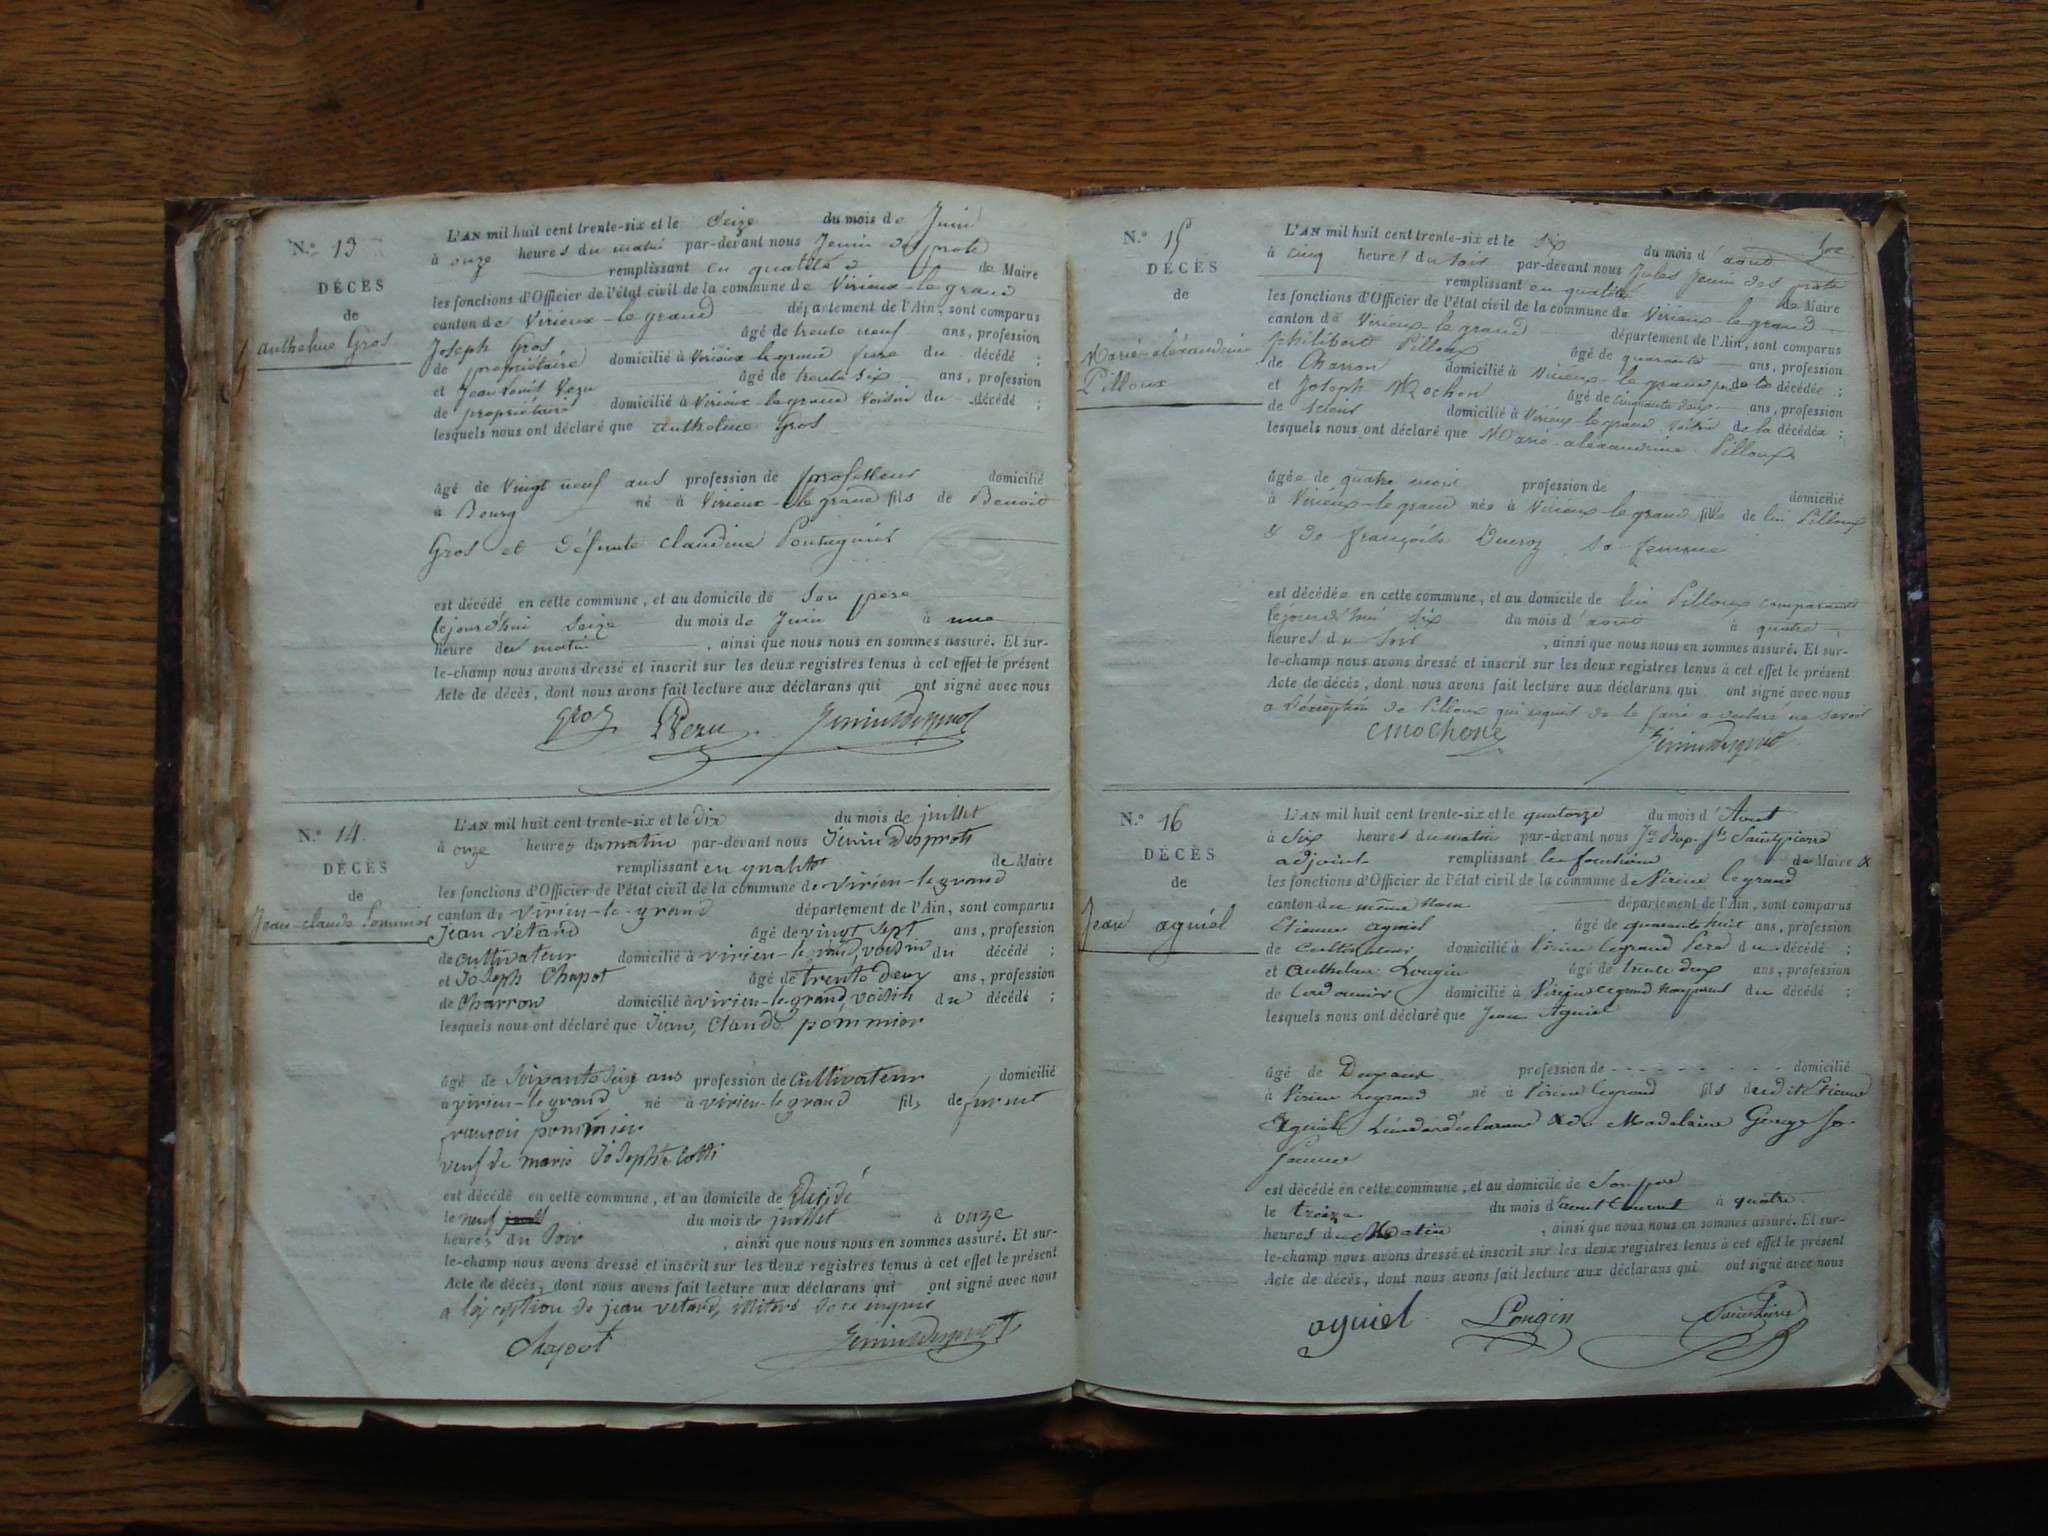 N.º 13
DÉCÈS
de
anthelme Gros
L'AN mil huit cent trente-six et le Seize du mois de Juin
à onze heures du matin par-devant nous Jenin des prots
remplissant en qualité de Maire
les fonctions d'Officier de l'état civil de la commune de Virieux-le-grand
canton de Virieux-le-grand département de l'Ain, sont comparus
Joseph Gros âgé de trente neuf ans, profession
de propriétaire domicilié à Virieux-le-grand frere du décédé ;
et Jean Louis Vezu âgé de trente six ans, profession
de propriétaire domicilié à Virieux-le-grand voisin du décédé ;
lesquels nous ont déclaré que anthelme Gros
âgé de vingt neuf ans profession de professeur domicilié
à Bourg né à Virieux-le-grand fils de Benoit
Gros et défunte claudine
est décédé en cette commune, et au domicile de son père
lejourd'hui seize du mois de Juin à une
heure du matin, ainsi que nous nous en sommes assuré. Et sur-
le-champ nous avons dressé et inscrit sur les deux registres tenus à cet effet le présent
Acte de décès, dont nous avons fait lecture aux déclarans qui ont signé avec nous
Gros Vezu Jenindesprots
N.º 14.
DÉCÈS
de
Jean-claude Pommier
L'AN mil huit cent trente-six et le dix du mois de juillet
à onze heures du matin par-devant nous Jenin Desprots
remplissant en qualité de Maire
les fonctions d'Officier de l'état civil de la commune de virieu-le-grand
canton de virieu-le-grand département de l'Ain, sont comparus
Jean vetard âgé de vingt sept ans, profession
de cultivateur domicilié à virieu-le-grand, voisin du décédé ;
et Joseph Chapot âgé de trente deux ans, profession
de Charron domicilié à virieu-le-grand, voisin du décédé ;
lesquels nous ont déclaré que Jean, Claude pommier
âgé de soixante seize ans profession de cultivateur domicilié
à virieu-le-grand né à virieu-le-grand fils de furent
francois pommier
veuf de marie Josephte
est décédé en cette commune, et au domicile de
le neuf du mois de juillet à onze
heures du soir, ainsi que nous nous en sommes assuré. Et sur-
le-champ nous avons dressé et inscrit sur les deux registres tenus à cet effet le présent
Acte de décès, dont nous avons fait lecture aux déclarans qui ont signé avec nous
à l'exception de jean vetard, de ce enquis
Chapot Jenindesprots
N.º 15
DÉCÈS
de
Marie-alexandrine
Pilloux
L'AN mil huit cent trente-six et le six du mois d'août
à cinq heures du soir par-devant nous Jules Jenin des prots
remplissant en qualité de Maire
les fonctions d'Officier de l'état civil de la commune de Virieux-le-grand
canton de Virieux-le-grand département de l'Ain, sont comparus
philibert Pilloux âgé de quarante ans, profession
de Charron domicilié à Virieux-le-grand père de la décédée ;
et Joseph Mochon âgé de cinquante deux ans, profession
de scieur domicilié à Virieux-le-grand voisin de la décédée ;
lesquels nous ont déclaré que Marie-alexandrine Pilloux
âgée de quatre mois profession de domicilié
à Virieux-le-grand née à Virieux-le-grand fille de lui Pilloux
& de françoise sa femme
est décédée en cette commune, et au domicile de lui Pilloux comparant
lejourd'hui six du mois d'août à quatre
heures du soir, ainsi que nous nous en sommes assuré. Et sur-
le-champ nous avons dressé et inscrit sur les deux registres tenus à cet effet le présent
Acte de décès, dont nous avons fait lecture aux déclarans qui ont signé avec nous
à l'exception de Pilloux qui requis de le faire a déclaré ne savoir
Jenindesprots
N.º 16
DÉCÈS
de
Jean aguiel
L'AN mil huit cent trente-six et le quatorze du mois d'Aout
à six heures du matin par-devant nous Saintpierre
adjoint remplissant les fonctions de Maire &
les fonctions d'Officier de l'état civil de la commune de Virieu legrand
canton du même nom département de l'Ain, sont comparus
Etienne aguiel âgé de quarante huit ans, profession
de cultivateur domicilié à Virieu legrand Père du décédé ;
et anthelme Longin âgé de trente deux ans, profession
de domicilié à Virieu legrand non parent du décédé ;
lesquels nous ont déclaré que Jean Aguiel
âgé de Deux ans profession de - - - - - - - domicilié
à Virieu legrand né à Virieu legrand fils du dit Etienne
Aguiel & de Madelaine George sa
femme
est décédé en cette commune, et au domicile de son père
le treize du mois d'aout courant à quatre
heures du matin, ainsi que nous nous en sommes assuré. Et sur-
le-champ nous avons dressé et inscrit sur les deux registres tenus à cet effet le présent
Acte de décès, dont nous avons fait lecture aux déclarans qui ont signé avec nous
aguiel Longin Saintpierre